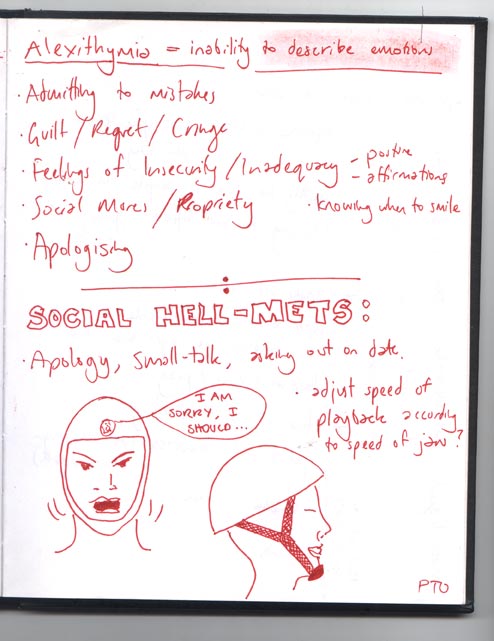 Alexithymia = inability to describe emotion
· Admitting to mistakes
· Guilt / Regret / Cringe
· Feelings of Insecurity / Inadequacy – posture
– affirmations
· Social Mores / Propriety · knowing when to smile
· Apologising
SOCIAL HELL-METS:
· Apology, small-talk, asking out on date.
· adjust speed of
playback according
to speed of jaw?
I AM
SORRY, I
SHOULD...
PTO